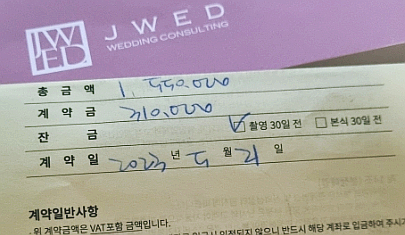 JW
ED
JWED
WEDDING CONSULTING
총 금 액 1,550,000
계 약 금 310,000
잔 금 ☑ 촬영 30일 전 ☐ 본식 30일 전
계 약 일 2023 년 5 월 21 일
계약일반사항
· 위 계약금액은 VAT포함 금액입니다.
입금